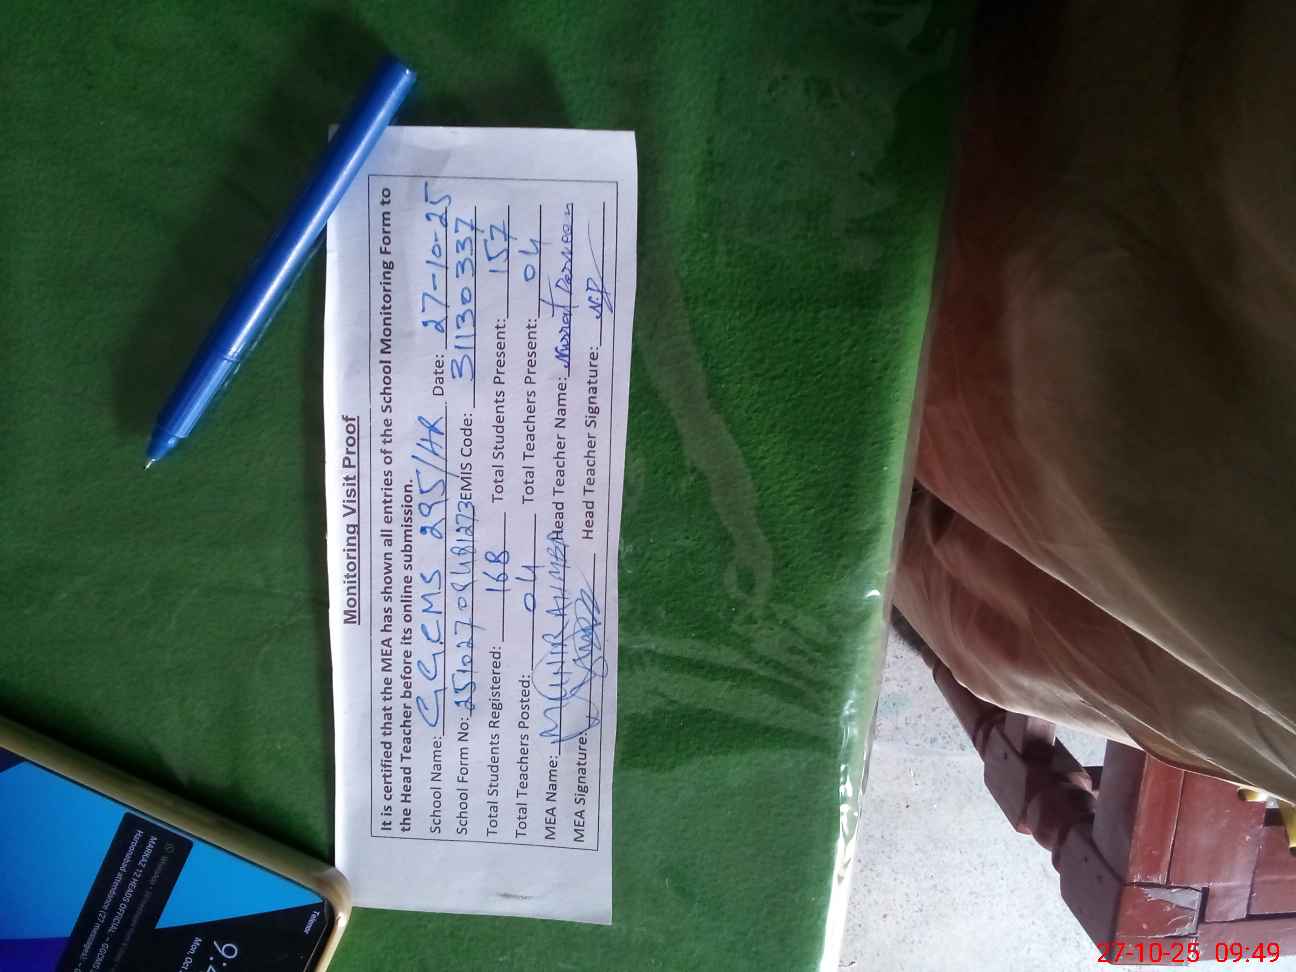 Monitoring Visit Proof
It is certified that the MEA has shown all entries of the School Monitoring Form to
the Head Teacher before its online submission.
School Name: GGCMS 295/HR Date: 27-10-25
School Form No: EMIS Code: 31130337
Total Students Registered: 168 Total Students Present: 157
Total Teachers Posted: 04 Total Teachers Present: 04
MEA Name: AHMED Head Teacher Name: Nusrat Parveen
MEA Signature: Head Teacher Signature: NP
Telenor
Mon, Oct
MARKAZ 12 HEADS OFFICIAL
Haroonabad attendance (27 messages):
27-10-25 09:49